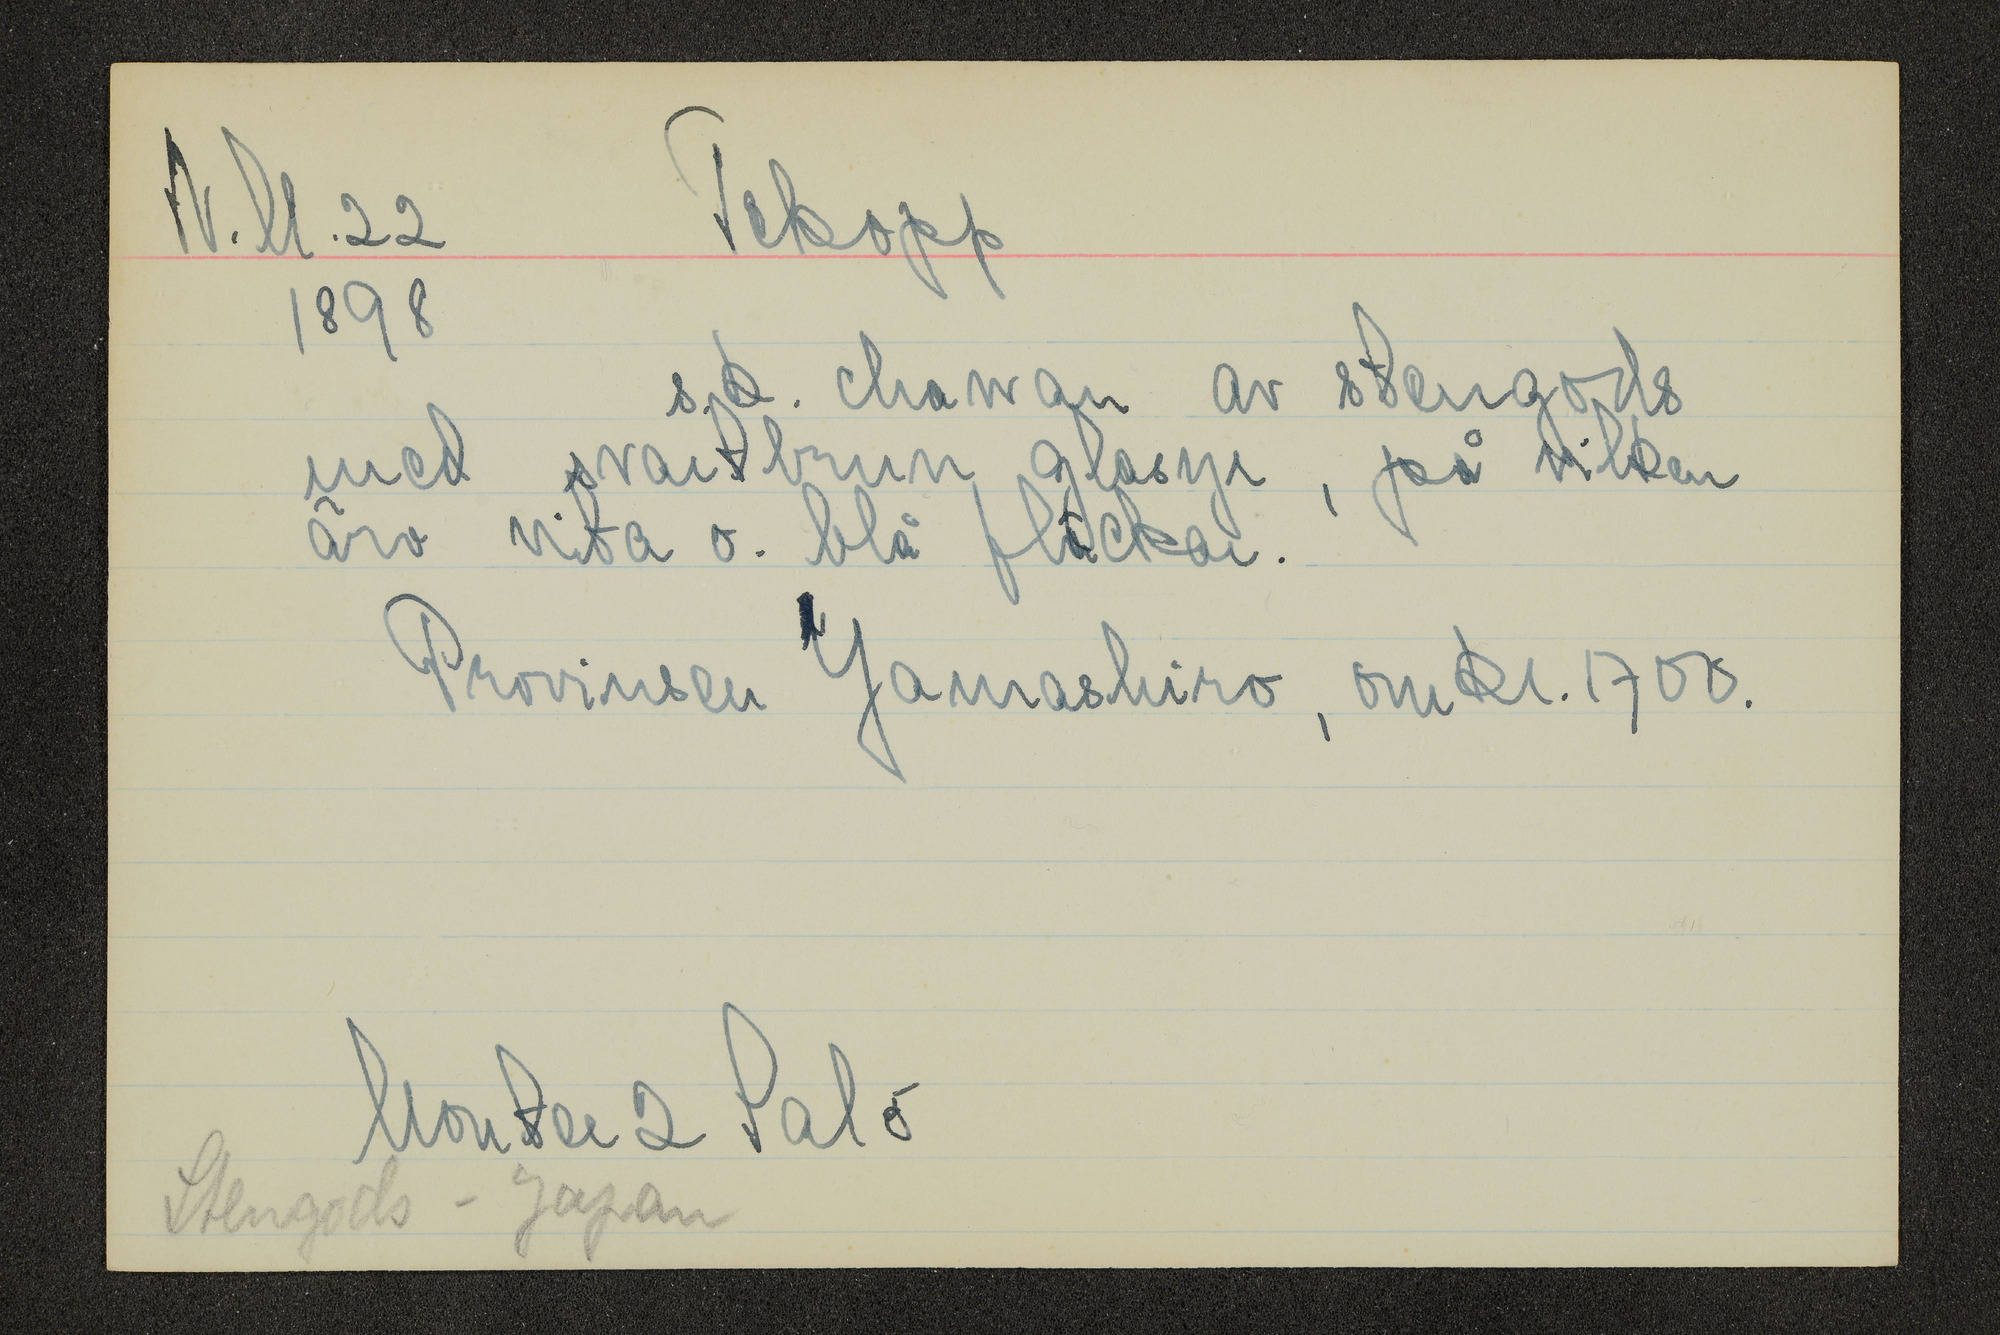 N.M.22 Tekopp
1898
s.k. chawan av stengods
med svartbrun glasyr, på vilken
äro vita o. blå fläckar.
Provinsen Yamashiro, omkr. 1700.
Monter 2 Sal 5
Stengods - Japan